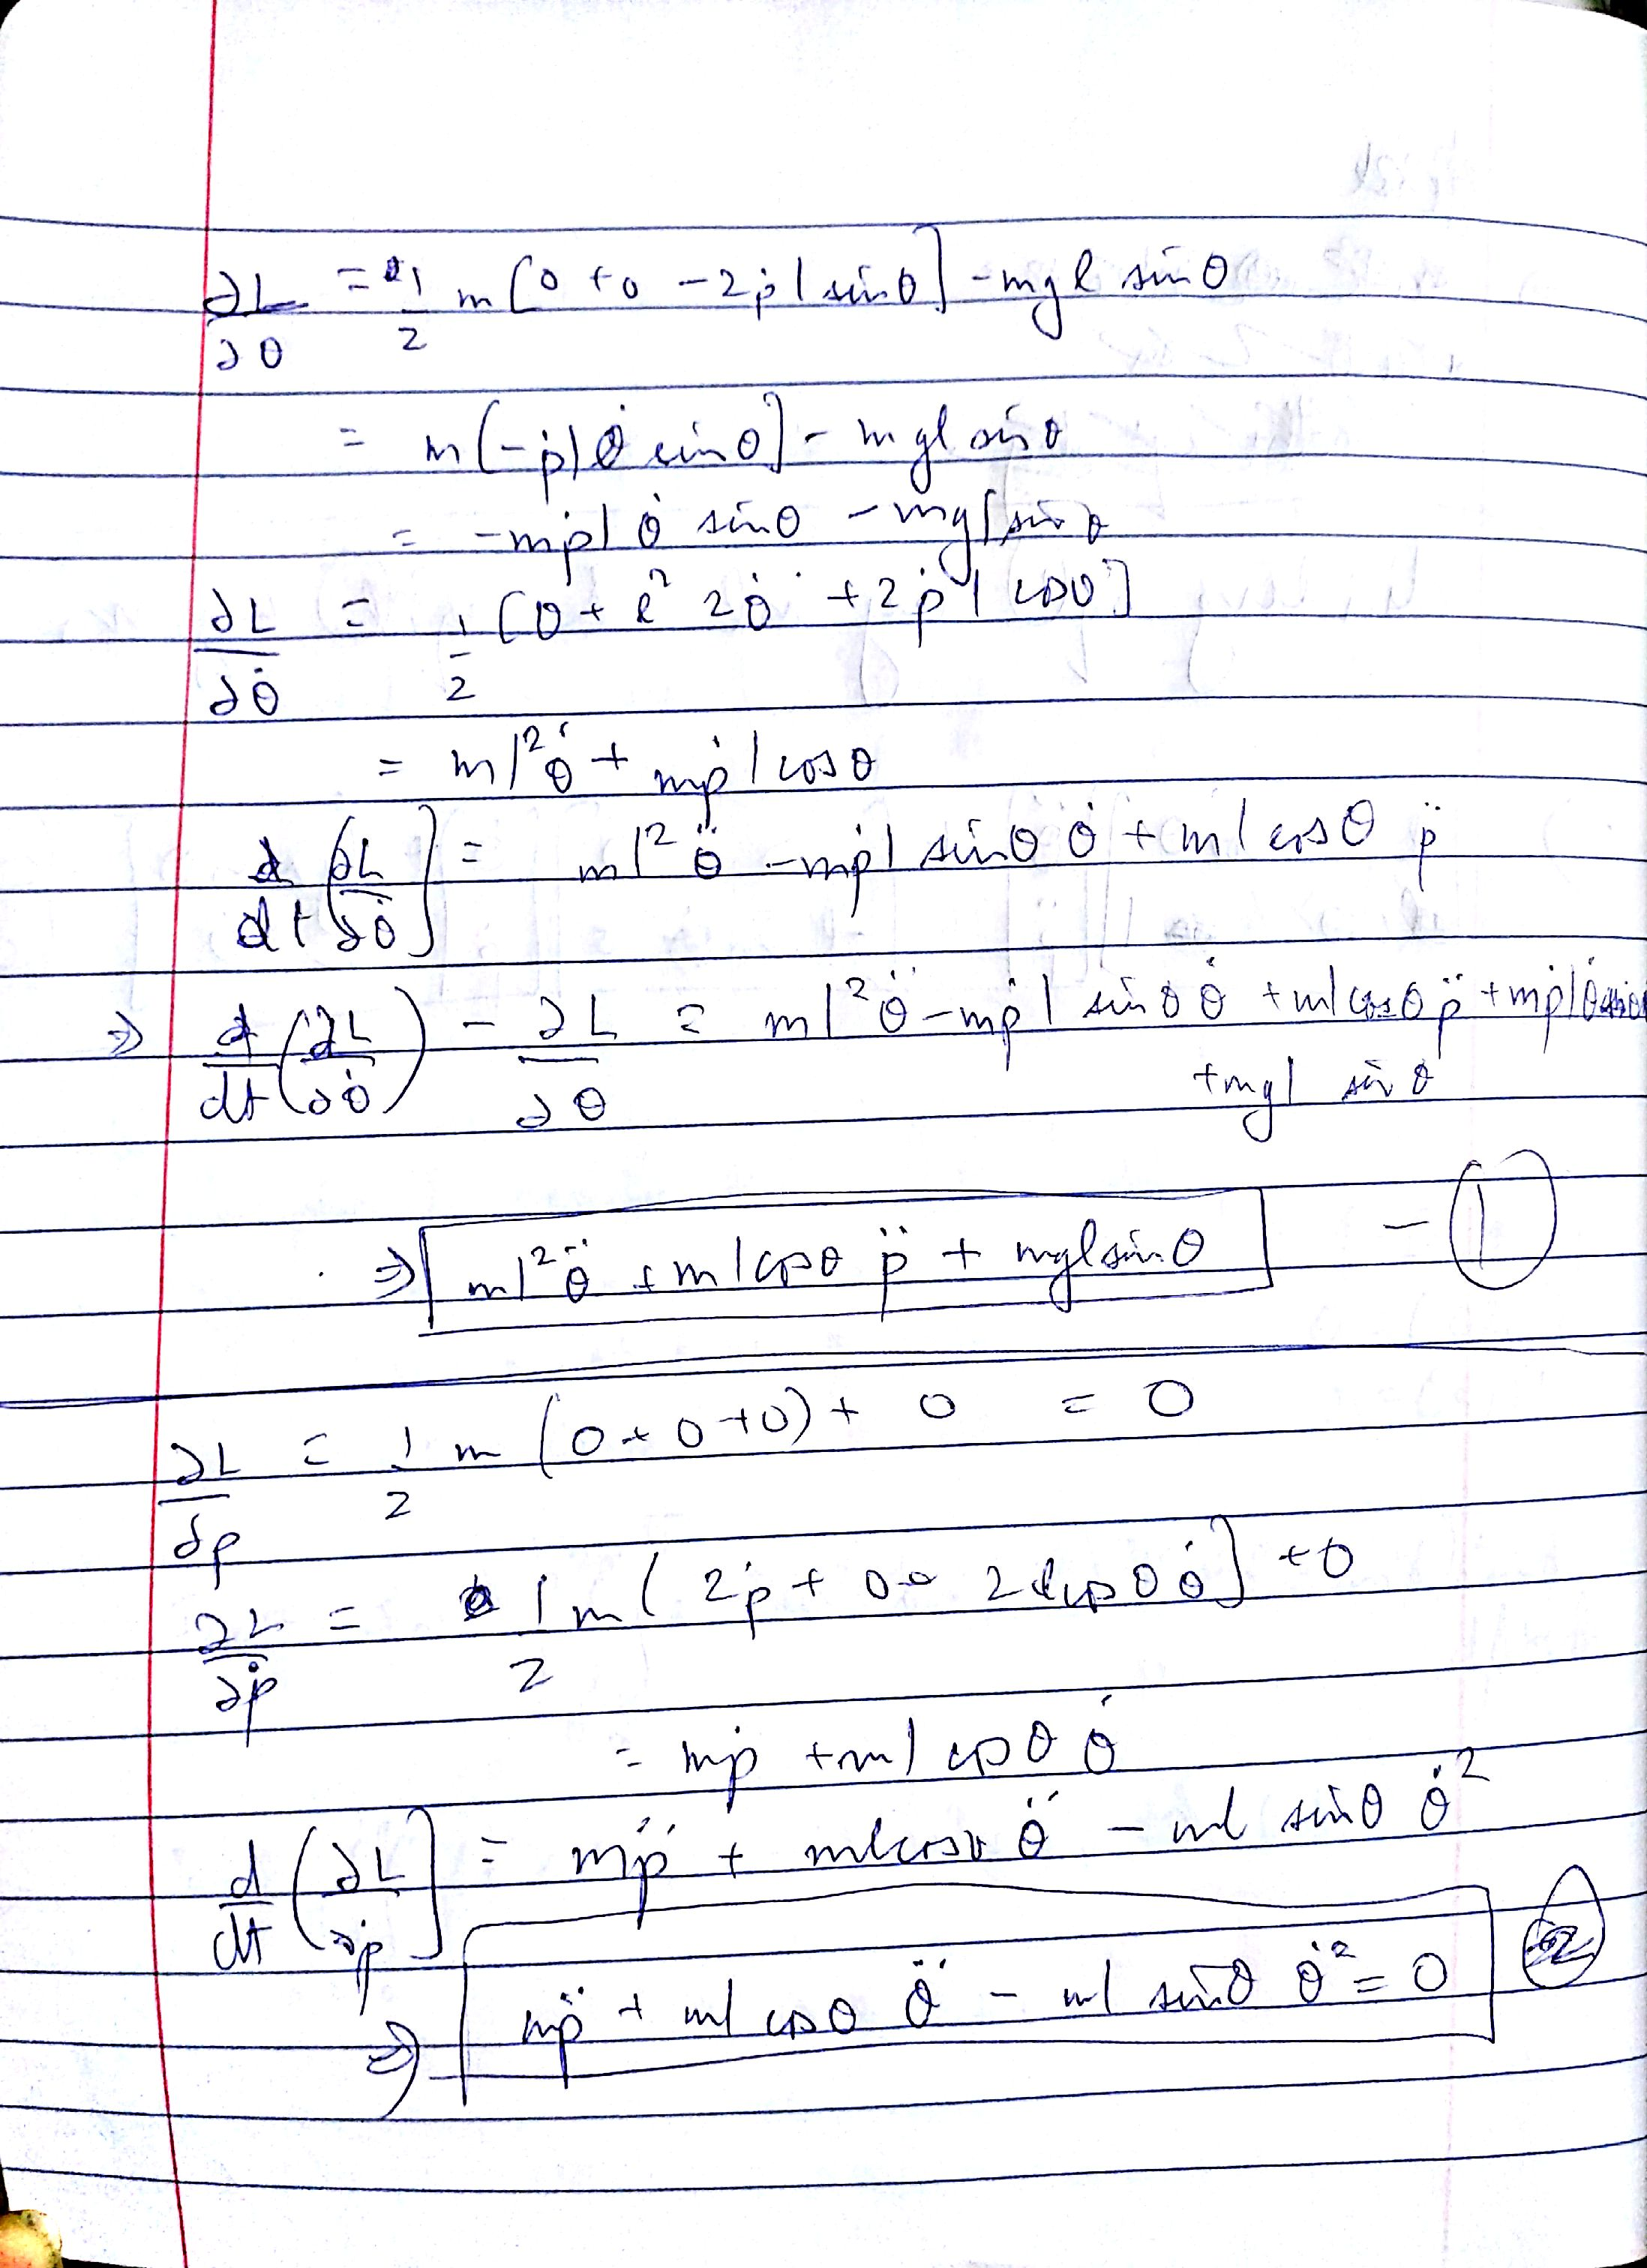 ∂L/∂θ = 1/2 m [0 + 0 - 2ṗ l sinθ] - mgl sinθ
= m[-ṗ l θ̇ sinθ] - mgl sinθ
= -mṗ l θ̇ sinθ - mgl sinθ
∂L/∂θ̇ = 1/2 [0 + l² 2θ̇ + 2ṗ l cosθ]
= ml²θ̇ + mṗ l cosθ
d/dt (∂L/∂θ̇) = ml²θ̈ - mṗ l sinθ θ̇ + ml cosθ p̈
⇒ d/dt (∂L/∂θ̇) - ∂L/∂θ = ml²θ̈ - mṗ l sinθ θ̇ + ml cosθ p̈ + mṗ l θ̇ sinθ
+ mgl sinθ
⇒ ml²θ̈ + ml cosθ p̈ + mgl sinθ - ①
∂L/∂p = 1/2 m (0 + 0 + 0) + 0 = 0
∂L/∂ṗ = 1/2 m (2ṗ + 0 + 2l cosθ θ̇] + 0
= mṗ + ml cosθ θ̇
d/dt (∂L/∂ṗ] = mp̈ + ml cosθ θ̈ - ml sinθ θ̇²
⇒ mp̈ + ml cosθ θ̈ - ml sinθ θ̇² = 0 ②